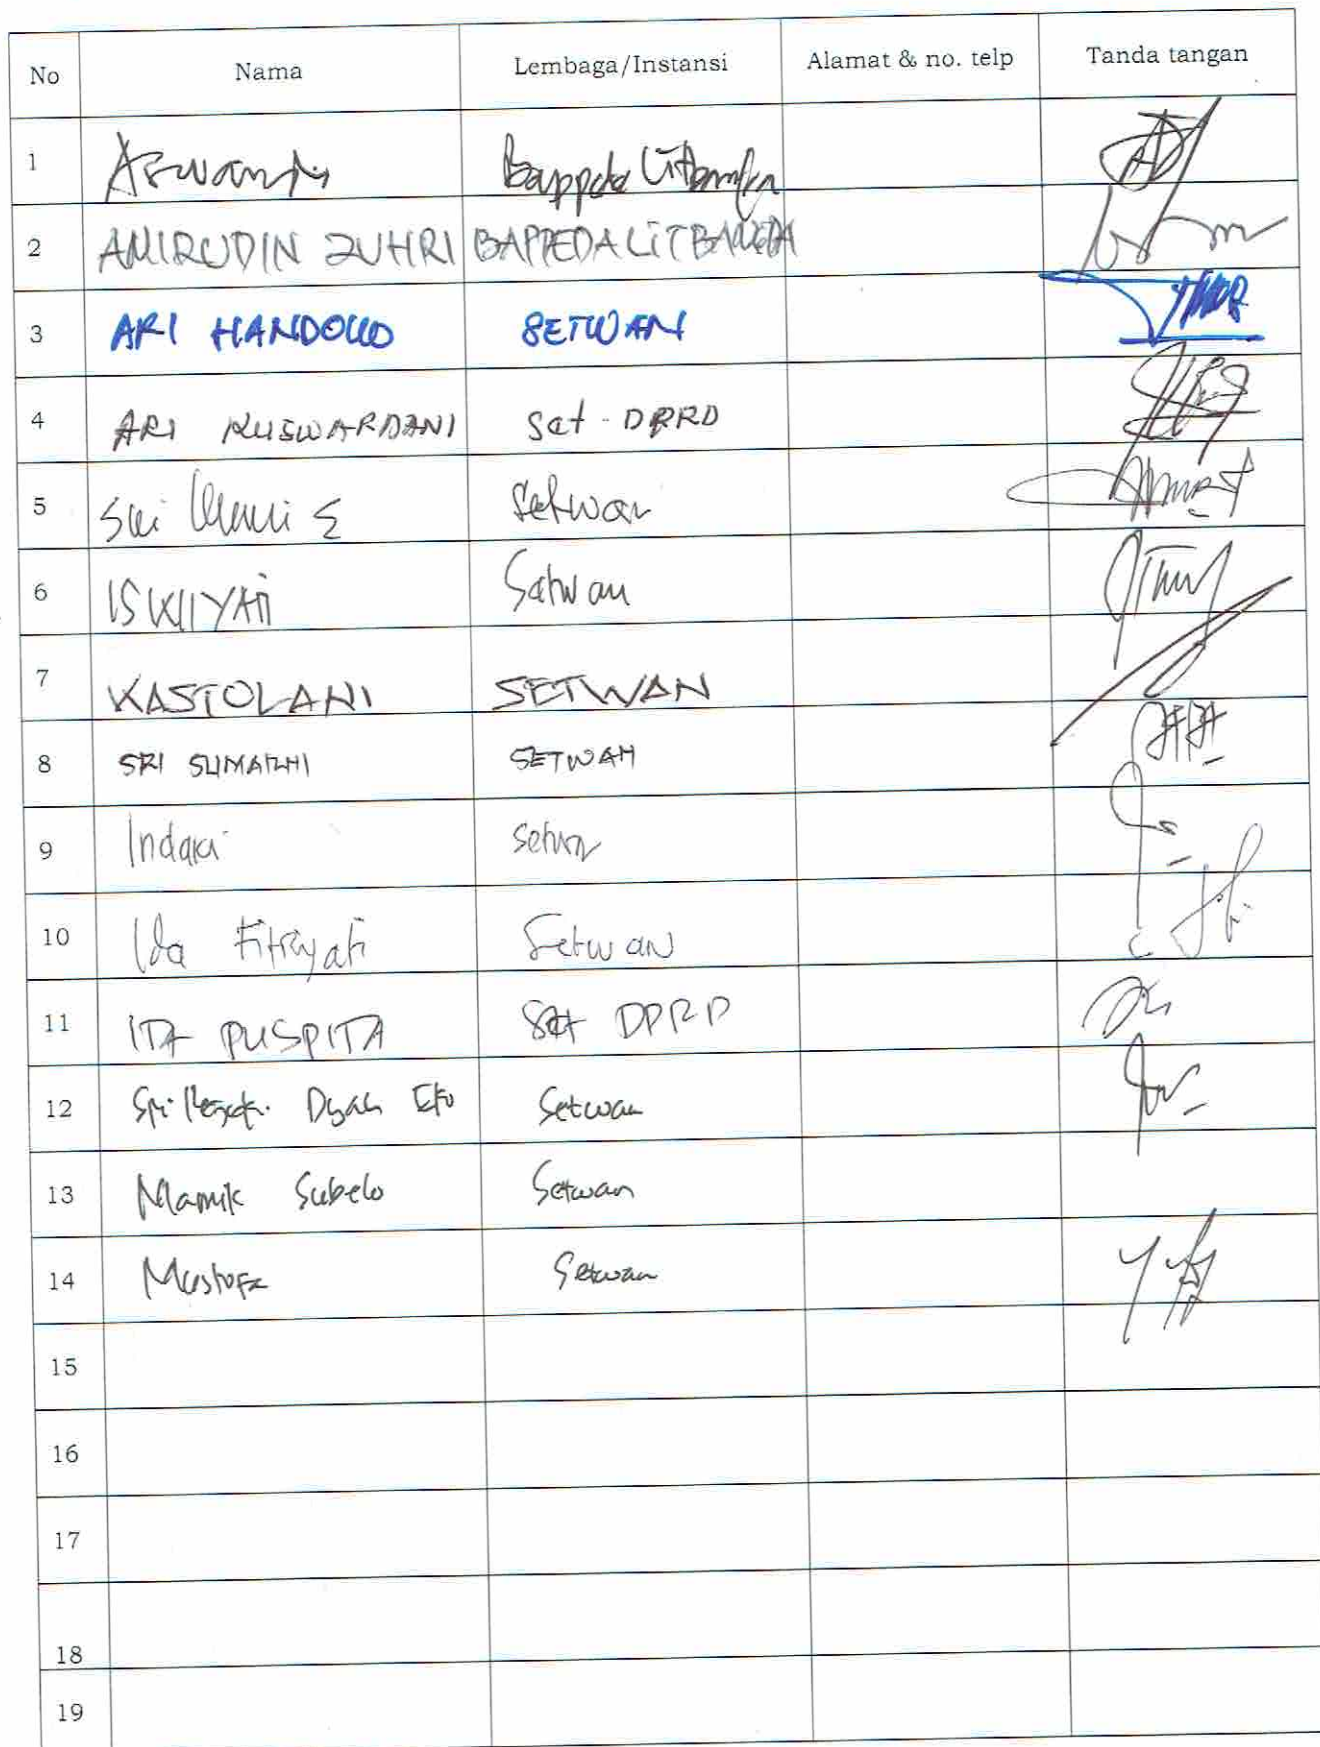 No Nama Lembaga/Instansi Alamat & no. telp Tanda tangan
1 Aswandi Bappeda Litbangda
2 AMIRUDIN ZUHRI BAPPEDALITBANGDA
3 ARI HANDOKO SETWAN
4 ARI KUSWARDANI Set - DPRD
5 Sri Setwan
6 ISKIYATI Setwan
7 KASTOLANI SETWAN
8 SRI SUMARNI SETWAN
9 Setwn
10 Ida Fitriyati Setwan
11 ITA PUSPITA Set DPRD
12 Sri Dyah Setwan
13 Mamik Subelo Setwan
14 Mustofa Setwan
15
16
17
18
19